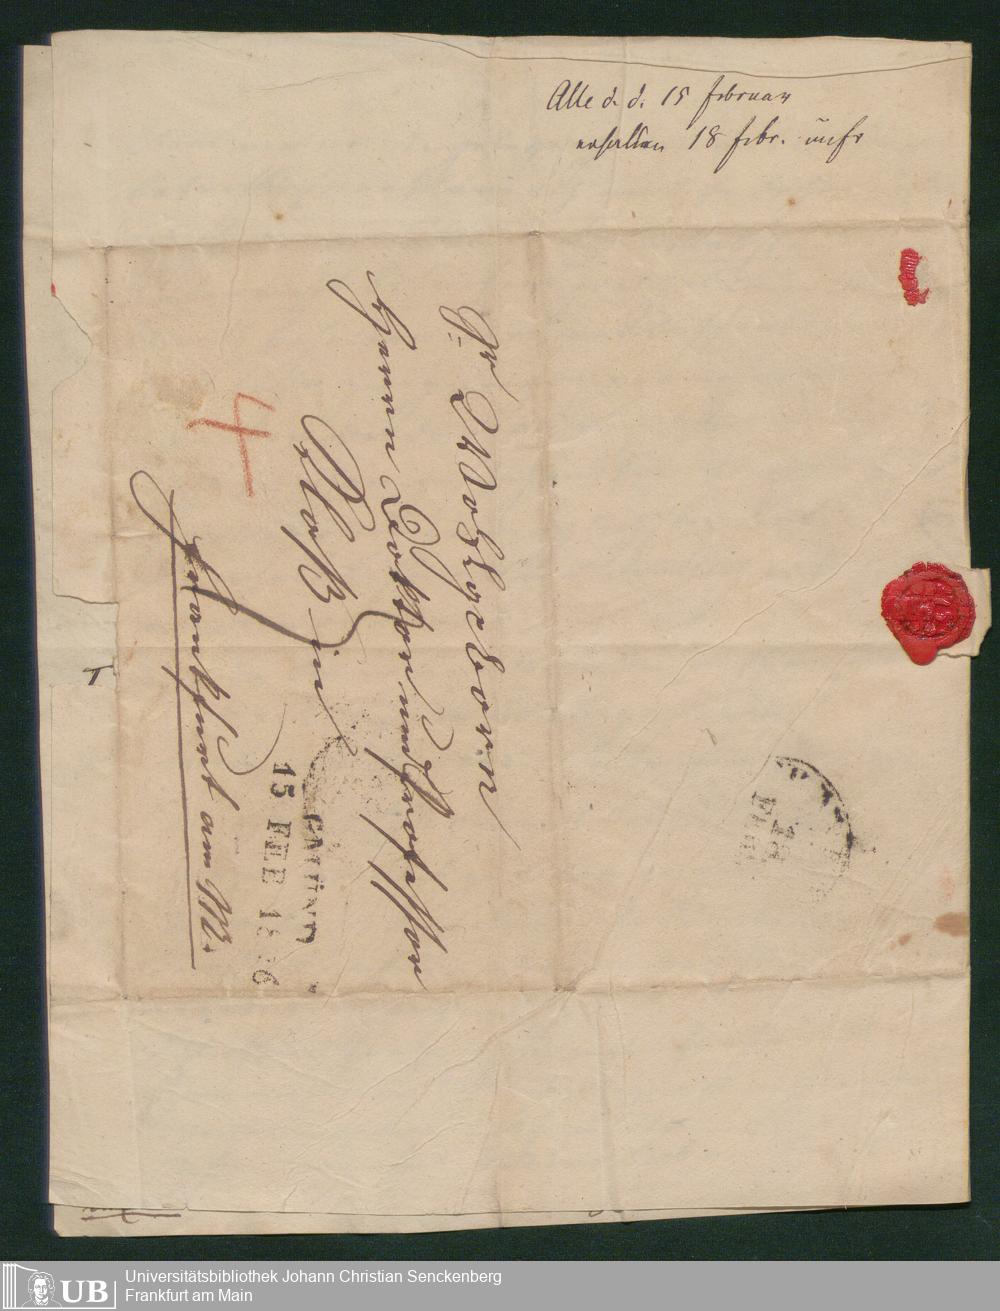 Alle d. d. 15 februar
erhalten 18 febr.
Wohlgeborn
Herrn Doktor und Professor
in
Frankfurt am M.
4
GMÜND
15 FEB 18 6
18
FEB
UB
Universitätsbibliothek Johann Christian Senckenberg
Frankfurt am Main